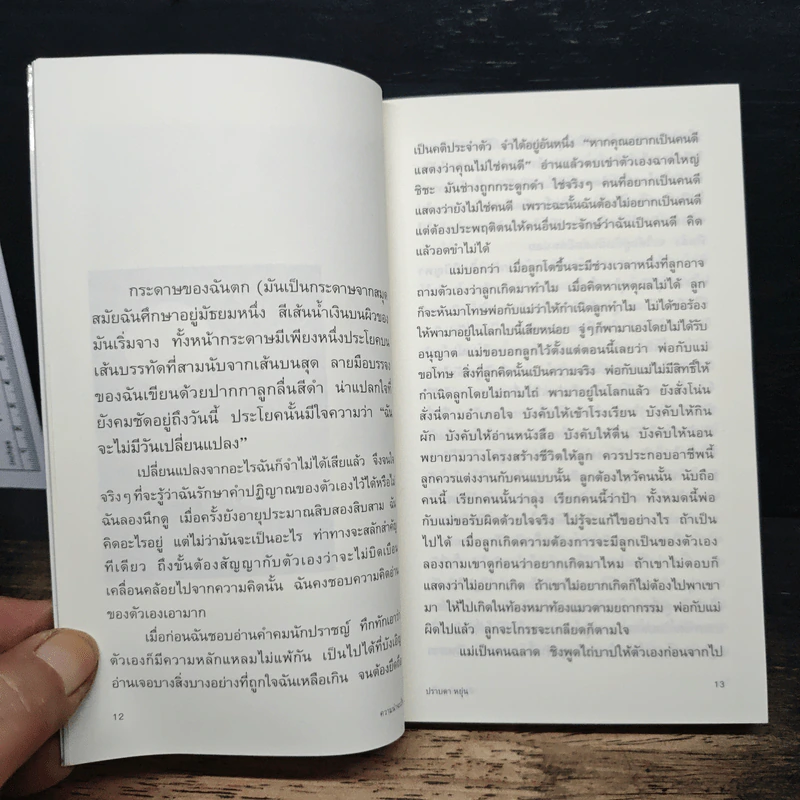 กระดาษของฉันตก (มันเป็นกระดาษจากสมุด
สมัยฉันศึกษาอยู่มัธยมหนึ่ง สีเส้นน้ำเงินบนผิวของ
มันเริ่มจาง ทั้งหน้ากระดาษมีเพียงหนึ่งประโยคบน
เส้นบรรทัดที่สามนับจากเส้นบนสุด ลายมือบรรจง
ของฉันเขียนด้วยปากกาลูกลื่นสีดำ น่าแปลกใจที่
ยังคมชัดอยู่ถึงวันนี้ ประโยคนั้นมีใจความว่า “ฉัน
จะไม่มีวันเปลี่ยนแปลง”
เปลี่ยนแปลงจากอะไรฉันก็จำไม่ได้เสียแล้ว จึงจนใจ
จริงๆ ที่จะรู้ว่าฉันรักษาคำปฏิญาณของตัวเองไว้ได้หรือไม่
ฉันลองนึกดู เมื่อครั้งยังอายุประมาณสิบสองสิบสาม ฉัน
คิดอะไรอยู่ แต่ไม่ว่ามันจะเป็นอะไร ท่าทางจะสลักสำคัญ
ทีเดียว ถึงขั้นต้องสัญญากับตัวเองว่าจะไม่บิดเบือน
เคลื่อนคล้อยไปจากความคิดนั้น ฉันคงชอบความคิดอ่าน
ของตัวเองเอามาก
เมื่อก่อนฉันชอบอ่านคำคมนักปราชญ์ ทึกทักเอาว่า
ตัวเองก็มีความหลักแหลมไม่แพ้กัน เป็นไปได้ที่บังเอิญ
อ่านเจอบางสิ่งบางอย่างที่ถูกใจฉันเหลือเกิน จนต้องยึดถือ
12
เป็นคติประจำตัว จำได้อยู่อันหนึ่ง “หากคุณอยากเป็นคนดี
แสดงว่าคุณไม่ใช่คนดี” อ่านแล้วตบเข่าตัวเองฉาดใหญ่
ชิชะ มันช่างถูกกระดูกดำ ใช่จริงๆ คนที่อยากเป็นคนดี
แสดงว่ายังไม่ใช่คนดี เพราะฉะนั้นฉันต้องไม่อยากเป็นคนดี
แต่ต้องประพฤติตนให้คนอื่นประจักษ์ว่าฉันเป็นคนดี คิด
แล้วอดขำไม่ได้
แม่บอกว่า เมื่อลูกโตขึ้นจะมีช่วงเวลาหนึ่งที่ลูกอาจ
ถามตัวเองว่าลูกเกิดมาทำไม เมื่อคิดหาเหตุผลไม่ได้ ลูก
ก็จะหันมาโทษพ่อกับแม่ว่าให้กำเนิดลูกทำไม ไม่ได้ขอร้อง
ให้พามาอยู่ในโลกใบนี้เสียหน่อย จู่ๆ ก็พามาเองโดยไม่ได้รับ
อนุญาต แม่ขอบอกลูกไว้ตั้งแต่ตอนนี้เลยว่า พ่อกับแม่
ขอโทษ สิ่งที่ลูกคิดนั้นเป็นความจริง พ่อกับแม่ไม่มีสิทธิ์ให้
กำเนิดลูกโดยไม่ถามไถ่ พามาอยู่ในโลกแล้ว ยังสั่งโน่น
สั่งนี่ตามอำเภอใจ บังคับให้เข้าโรงเรียน บังคับให้กิน
ผัก บังคับให้อ่านหนังสือ บังคับให้ตื่น บังคับให้นอน
พยายามวางโครงสร้างชีวิตให้ลูก ควรประกอบอาชีพนี้
ลูกควรแต่งงานกับคนแบบนั้น ลูกต้องไหว้คนนั้น นับถือ
คนนี้ เรียกคนนั้นว่าลุง เรียกคนนี้ว่าป้า ทั้งหมดนี้พ่อ
กับแม่ขอรับผิดด้วยใจจริง ไม่รู้จะแก้ไขอย่างไร ถ้าเป็น
ไปได้ เมื่อลูกเกิดความต้องการจะมีลูกเป็นของตัวเอง
ลองถามเขาดูก่อนว่าอยากเกิดมาไหม ถ้าเขาไม่ตอบก็
แสดงว่าไม่อยากเกิด ถ้าเขาไม่อยากเกิดก็ไม่ต้องไปพาเขา
มา ให้ไปเกิดในท้องหมาท้องแมวตามยถากรรม พ่อกับแม่
ผิดไปแล้ว ลูกจะโกรธจะเกลียดก็ตามใจ
แม่เป็นคนฉลาด ชิงพูดไถ่บาปให้ตัวเองก่อนจากไป
ปราบดา หยุ่น
13